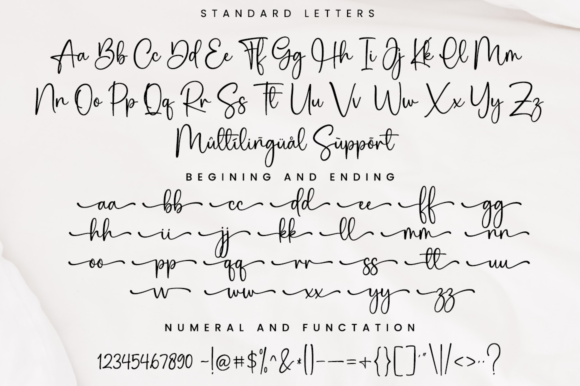 STANDARD LETTERS
Aa Bb Cc Dd Ee Ff Gg Hh Ii Jj Kk Ll Mm
Nn Oo Pp Qq Rr Ss Tt Uu Vv Ww Xx Yy Zz
Multilingual Support
BEGINING AND ENDING
aa bb cc dd ee ff gg
hh ii jj kk ll mm nn
oo pp qq rr ss tt uu
vv ww xx yy zz
NUMERAL AND FUNCTATION
1234567890 -!@#$%^&*()-—=+{}[]'"\|/<>..?